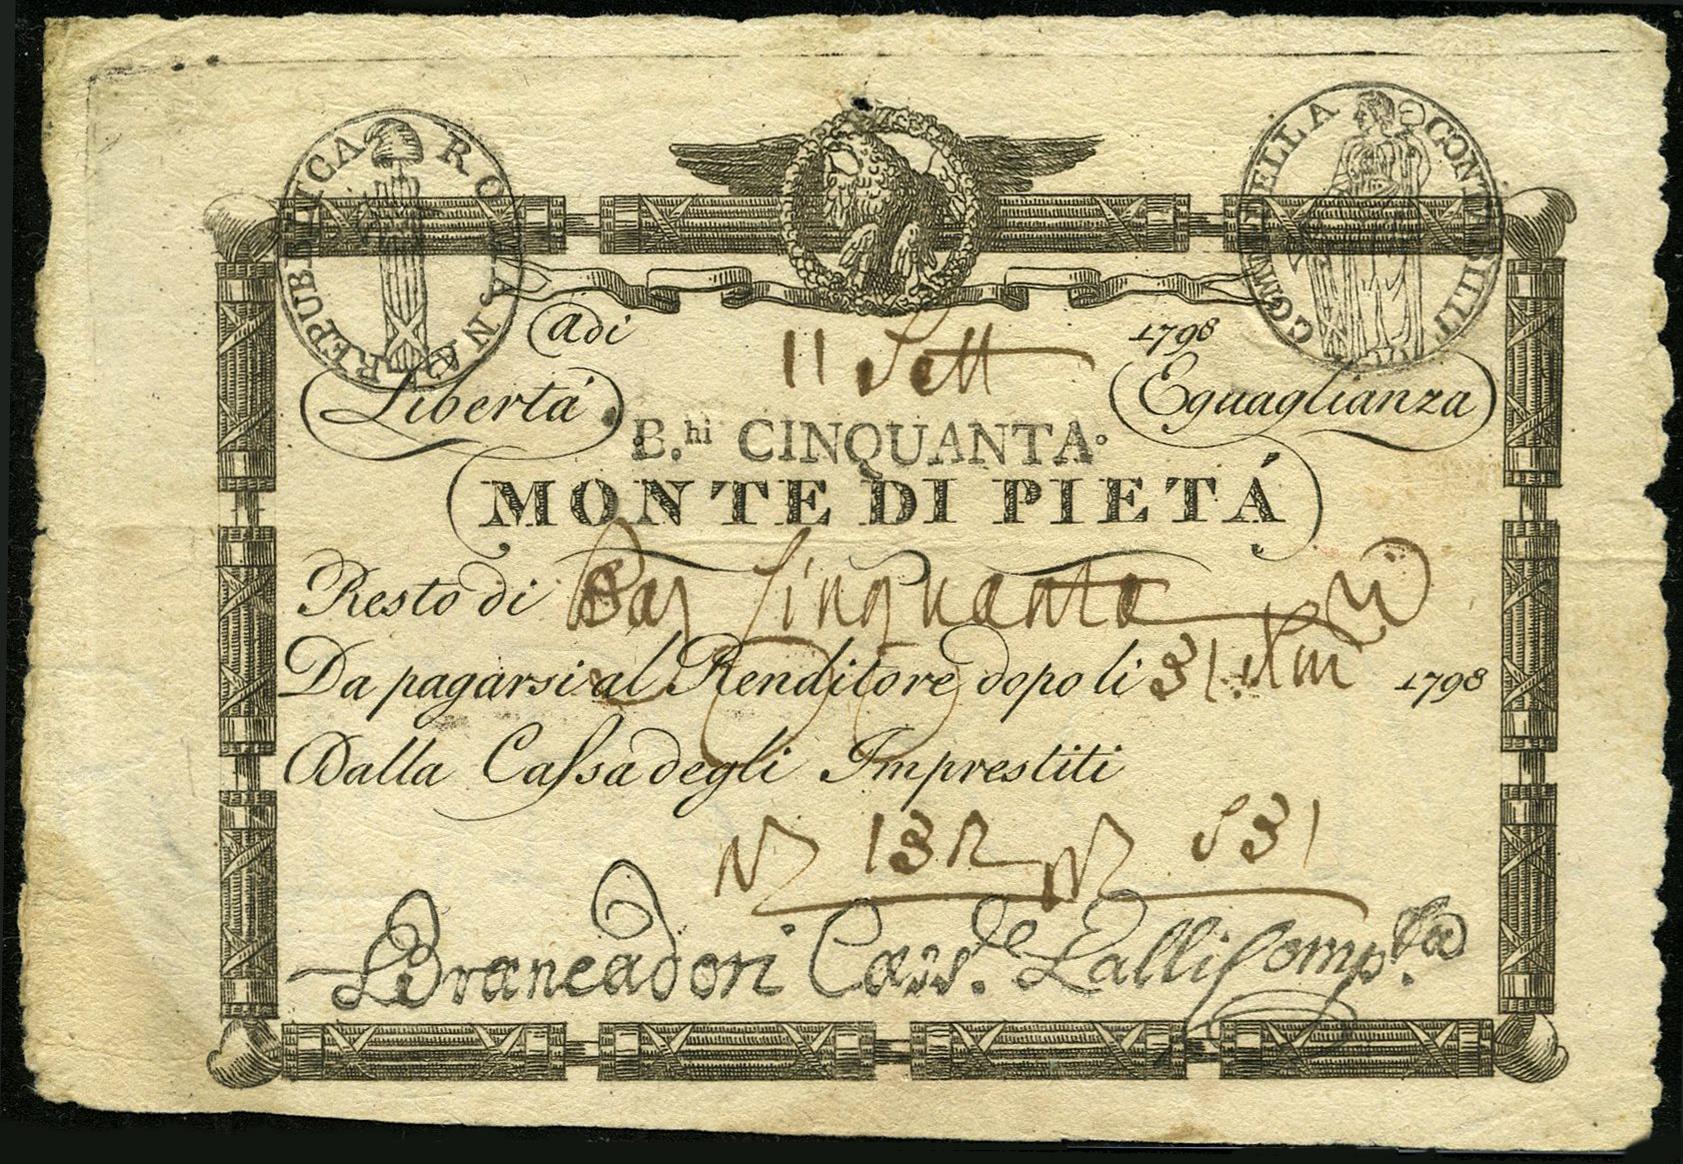 REPUBBLICA ROMANA
COMM. DELLA CONTABILIT
Adi 11 Sett 1798
Libertá Eguaglianza
B.hi CINQUANTA
MONTE DI PIETÁ
Resto di Baj Cinquanta
Da pagarsi al Renditore dopo li 31 1798
Dalla Cassa degli Imprestiti
N 132 N 531
Brancadori Cass.re Lalli Comp.ta